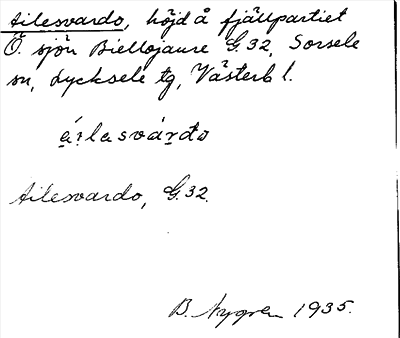 Ailesvardo, höjd å fjällpartiet
Ö. sjön Biellojaure G.32, Sorsele
sn, Lycksele tg, Västerb l.
á̱i̱lasváṟđo
Ailesvardo, G.32.
B. Nygren 1935.